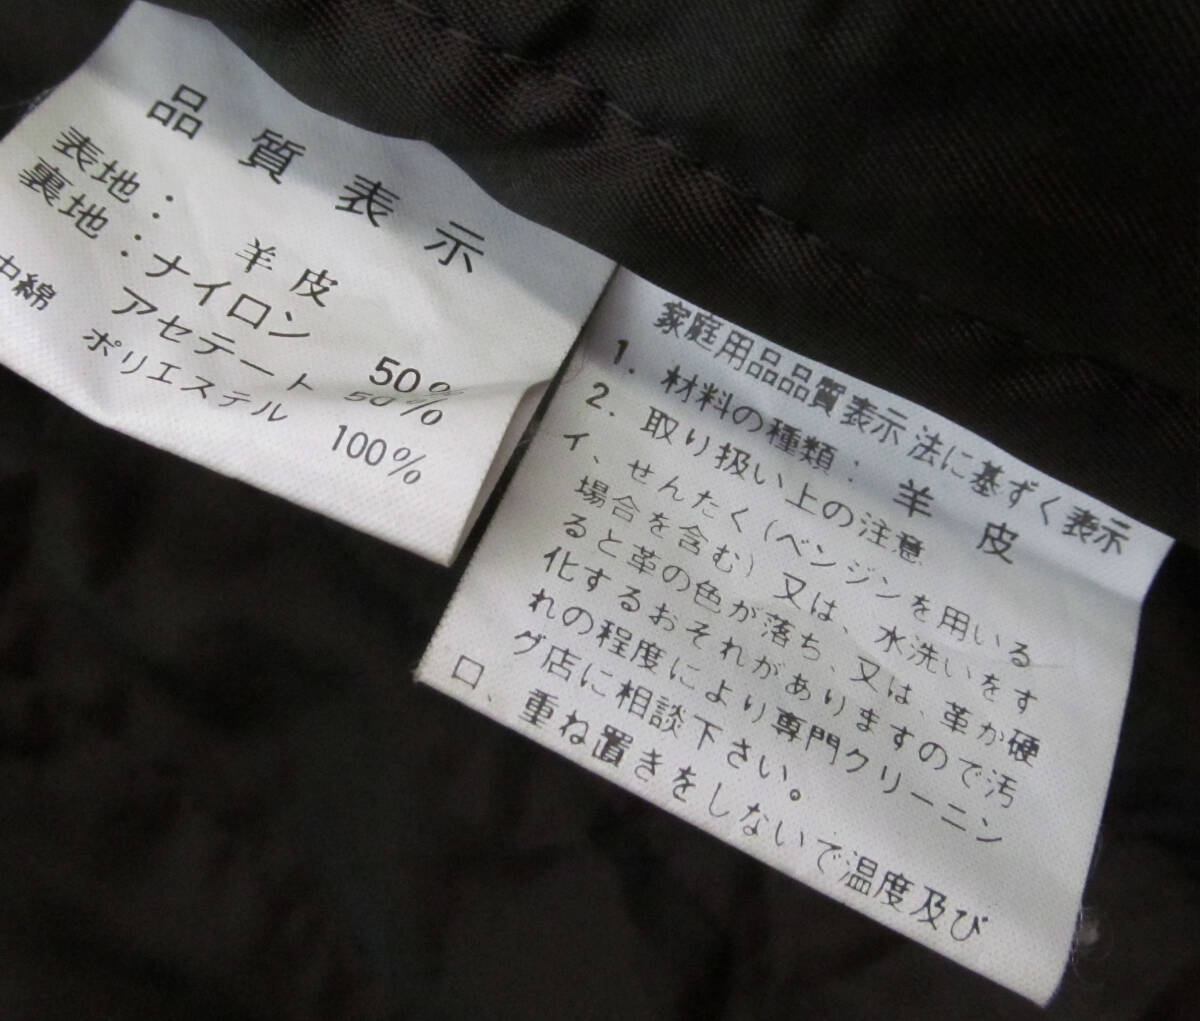 品質表示
表地：
羊皮
裏地：ナイロン 50%
アセテート 50%
中綿 ポリエステル 100%
家庭用品品質表示法に基ずく表示
1. 材料の種類： 羊皮
2. 取り扱い上の注意
イ、せんたく（ベンジンを用いる
場合を含む）又は、水洗いをす
ると革の色が落ち、又は、革か硬
化するおそれがありますので汚
れの程度により専門クリーニン
グ店に相談下さい。
口、重ね置きをしないで温度及び